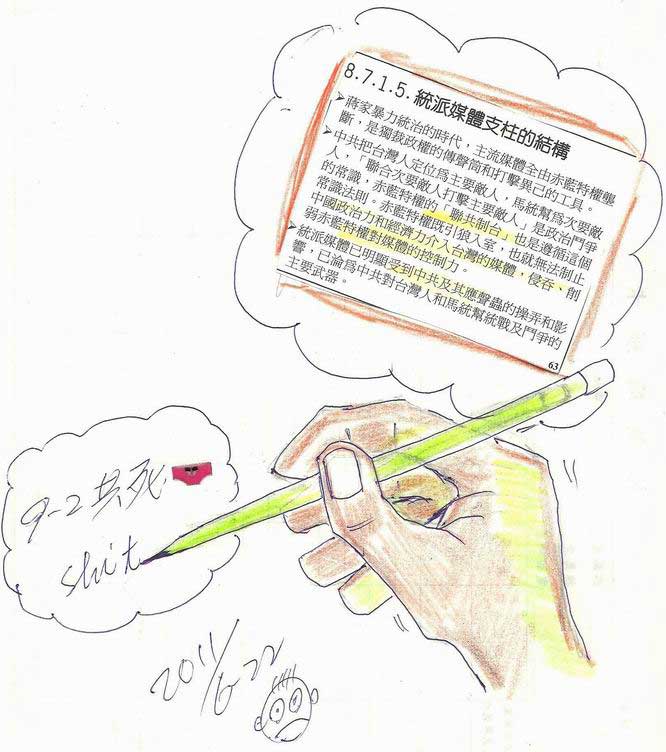 8.7.1.5.統派媒體支柱的結構
➢蔣家暴力統治的時代，主流媒體全由赤藍特權壟
斷，是獨裁政權的傳聲筒和打擊異己的工具。
➢中共把台灣人定位為主要敵人，馬統幫為次要敵
人，「聯合次要敵人打擊主要敵人」是政治鬥爭
的常識，赤藍特權的「聯共制台」也是遵循這個
常識法則。赤藍特權既引狼入室，也就無法制止
中國政治力和經濟力介入台灣的媒體，侵吞、削
弱赤藍特權對媒體的控制力。
➢統派媒體已明顯受到中共及其應聲蟲的操弄和影
響，已淪為中共對台灣人和馬統幫統戰及鬥爭的
主要武器。
63
9-2共死
shit
2011/6-22